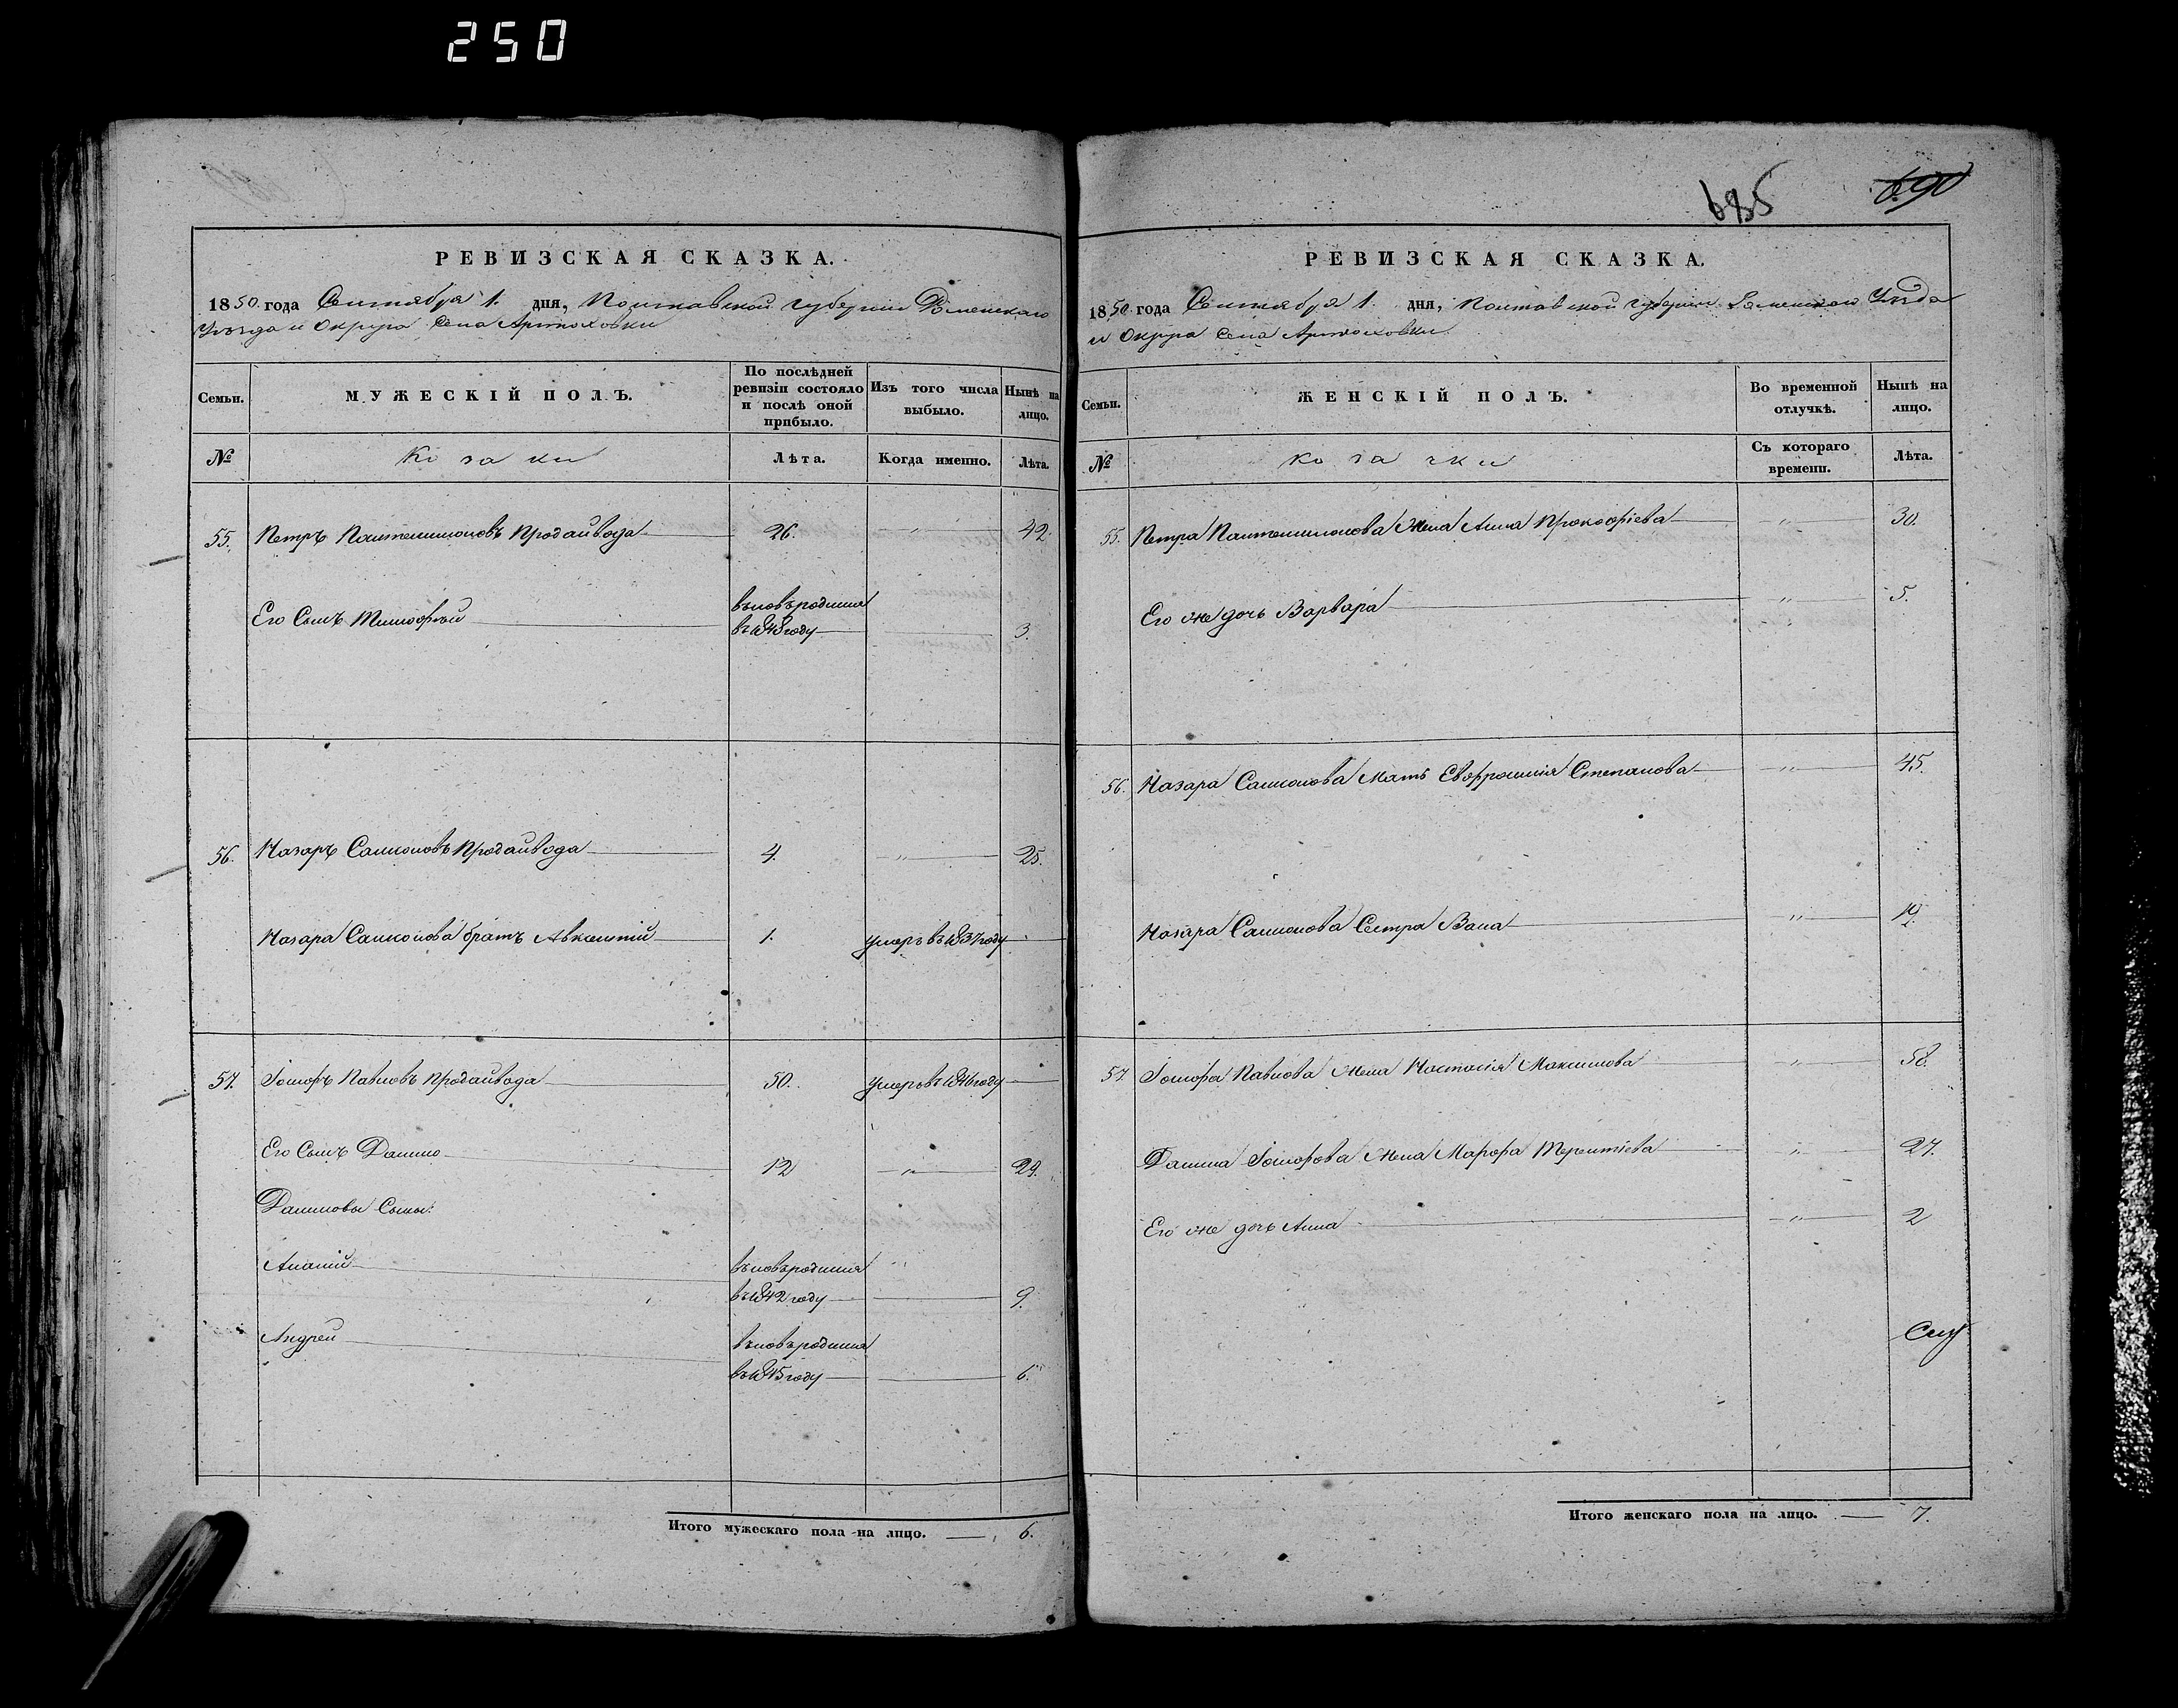 250
685
690
РЕВИЗСКАЯ СКАЗКА.
1850. года Сентября 1. дня, Полтавской губернии Роменскаго
Уѣзда и Округа Села Артюховки
Семьи.
МУЖЕСКІЙ ПОЛЪ.
По послѣдней ревизіи состояло и послѣ оной прибыло.
Изъ того числа выбыло.
Нынѣ на лицо.
№
Козаки
Лѣта.
Когда именно.
Лѣта.
55. Петръ Пантелимоновъ Продайвода 26. " 42.
Его Сынъ Тимофѣй вновь родился
въ 1848 году 3.
56. Назаръ Самсоновъ Продайвода 4. " 25.
Назара Самсонова братъ Авксентій 1. умеръ въ 1837 году
57. Павловъ Продайвода 50. умеръ въ 1846 году
Его Сынъ Данило 12 " 29.
Даниловы Сыны:
Ананій вновь родился "
въ 1842 году 9.
Андрей вновь родился
въ 1845 году 6.
Итого мужескаго пола на лицо. 6.
РЕВИЗСКАЯ СКАЗКА.
1850. года Сентября 1. дня, Полтавской губернии Роменскаго Уѣзда
и Округа Села Артюховки
Семьи.
ЖЕНСКІЙ ПОЛЪ.
Во временной отлучкѣ.
Нынѣ на лицо.
№
Козачки
Съ котораго времени.
Лѣта.
55. Петра Пантелимонова Жена Анна Прокофіева " 30.
Его же дочь Варвара " 5.
56. Назара Самсонова Мать Евфросинія Степанова " 45.
Назара Самсонова Сестра " 19.
57. Павлова Жена Настасія Максимова " 58.
Данила Жена Марфа Терентіева " 27.
Его же дочь Анна " 2
Итого женскаго пола на лицо. 7.